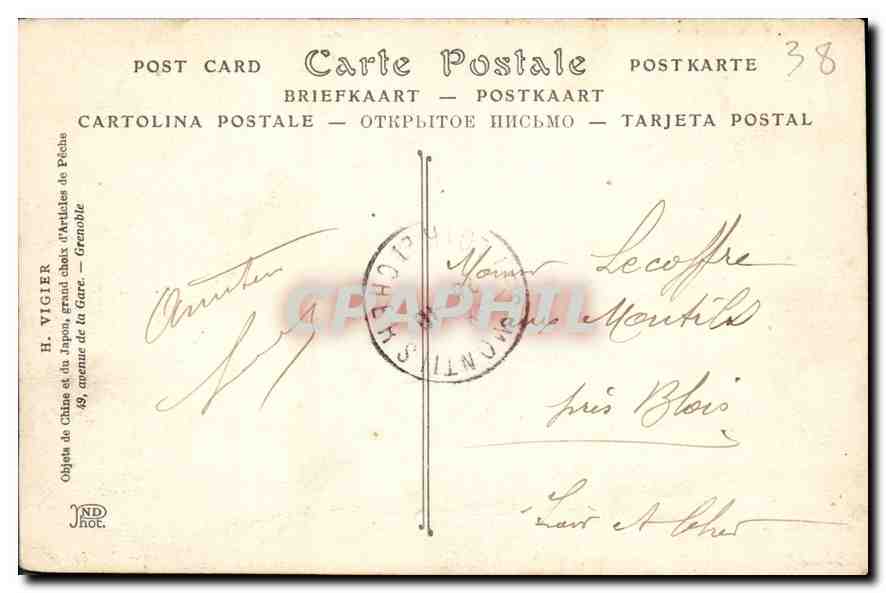 38
POST CARD Carte Postale POSTKARTE
BRIEFKAART — POSTKAART
CARTOLINA POSTALE — ОТКРЫТОЕ ПИСЬМО — TARJETA POSTAL
H. VIGIER
Objets de Chine et du Japon, grand choix d'Articles de Pêche
49, avenue de la Gare. — Grenoble
ND
Phot.
LOIR ET CHER
MONTILS
CPAPHIL
Lecoffre
aux Montils
près Blois
Loir et Cher